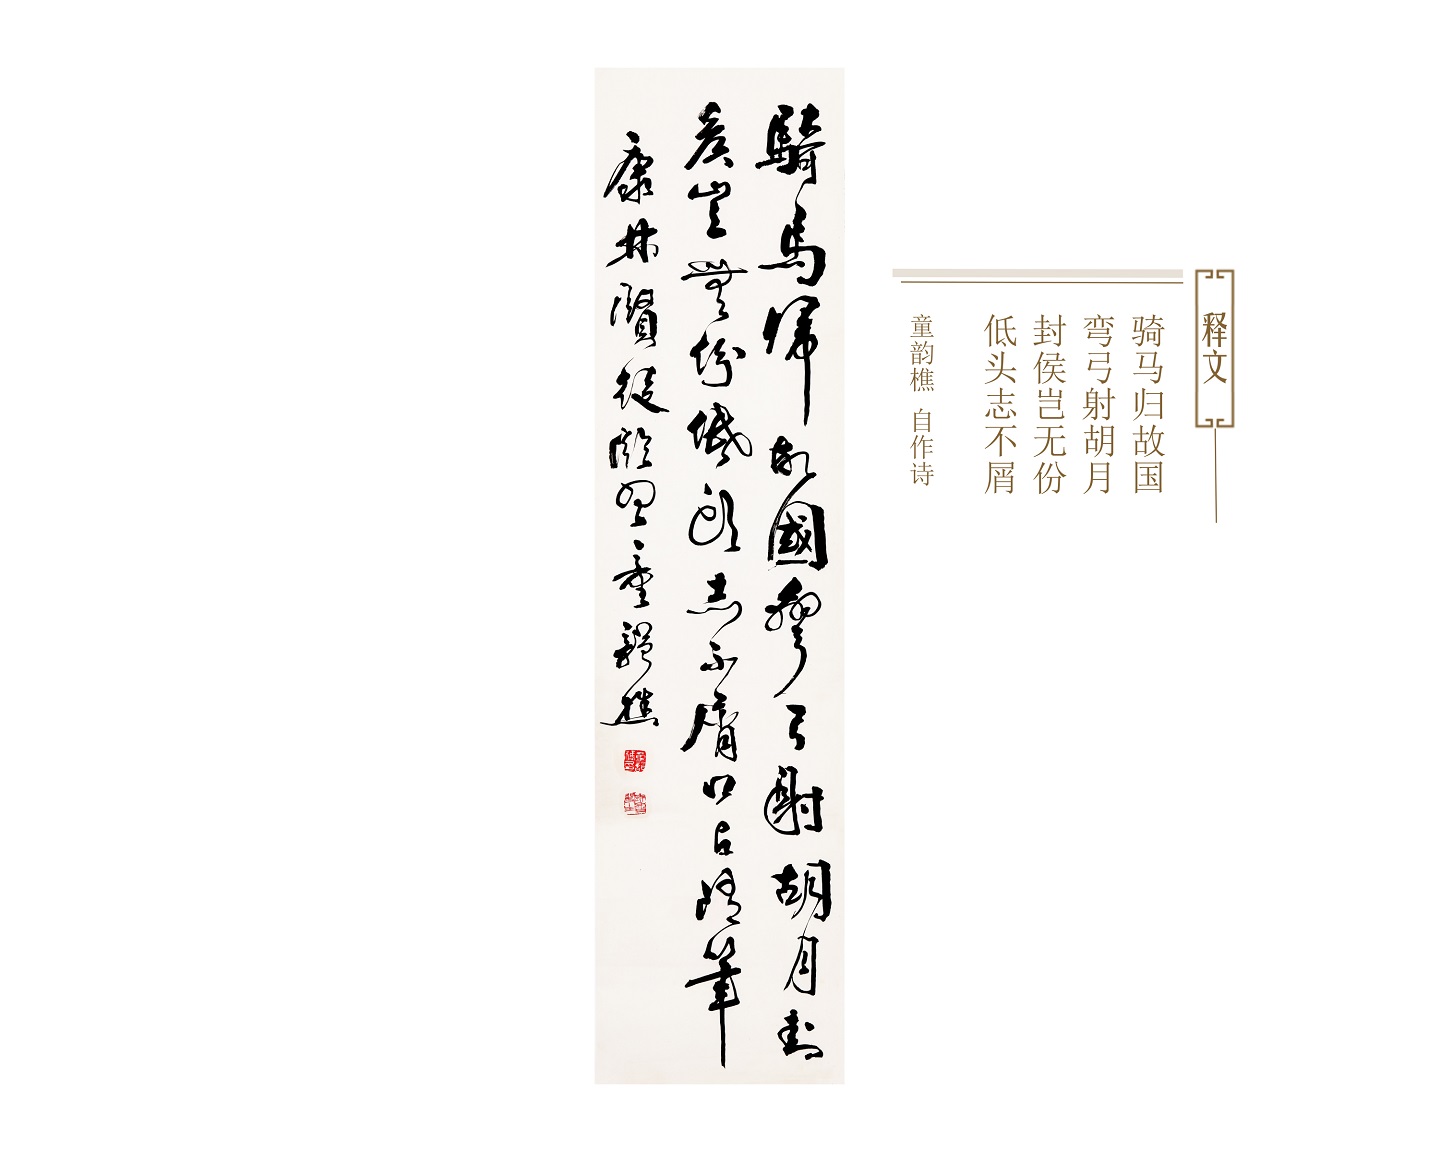 騎馬歸故國彎弓射胡月封
侯豈無份低頭志不屑口占請筆
康林賢徒瞰思童韻樵
释文
骑马归故国
弯弓射胡月
封侯岂无份
低头志不屑
童韵樵 自作诗